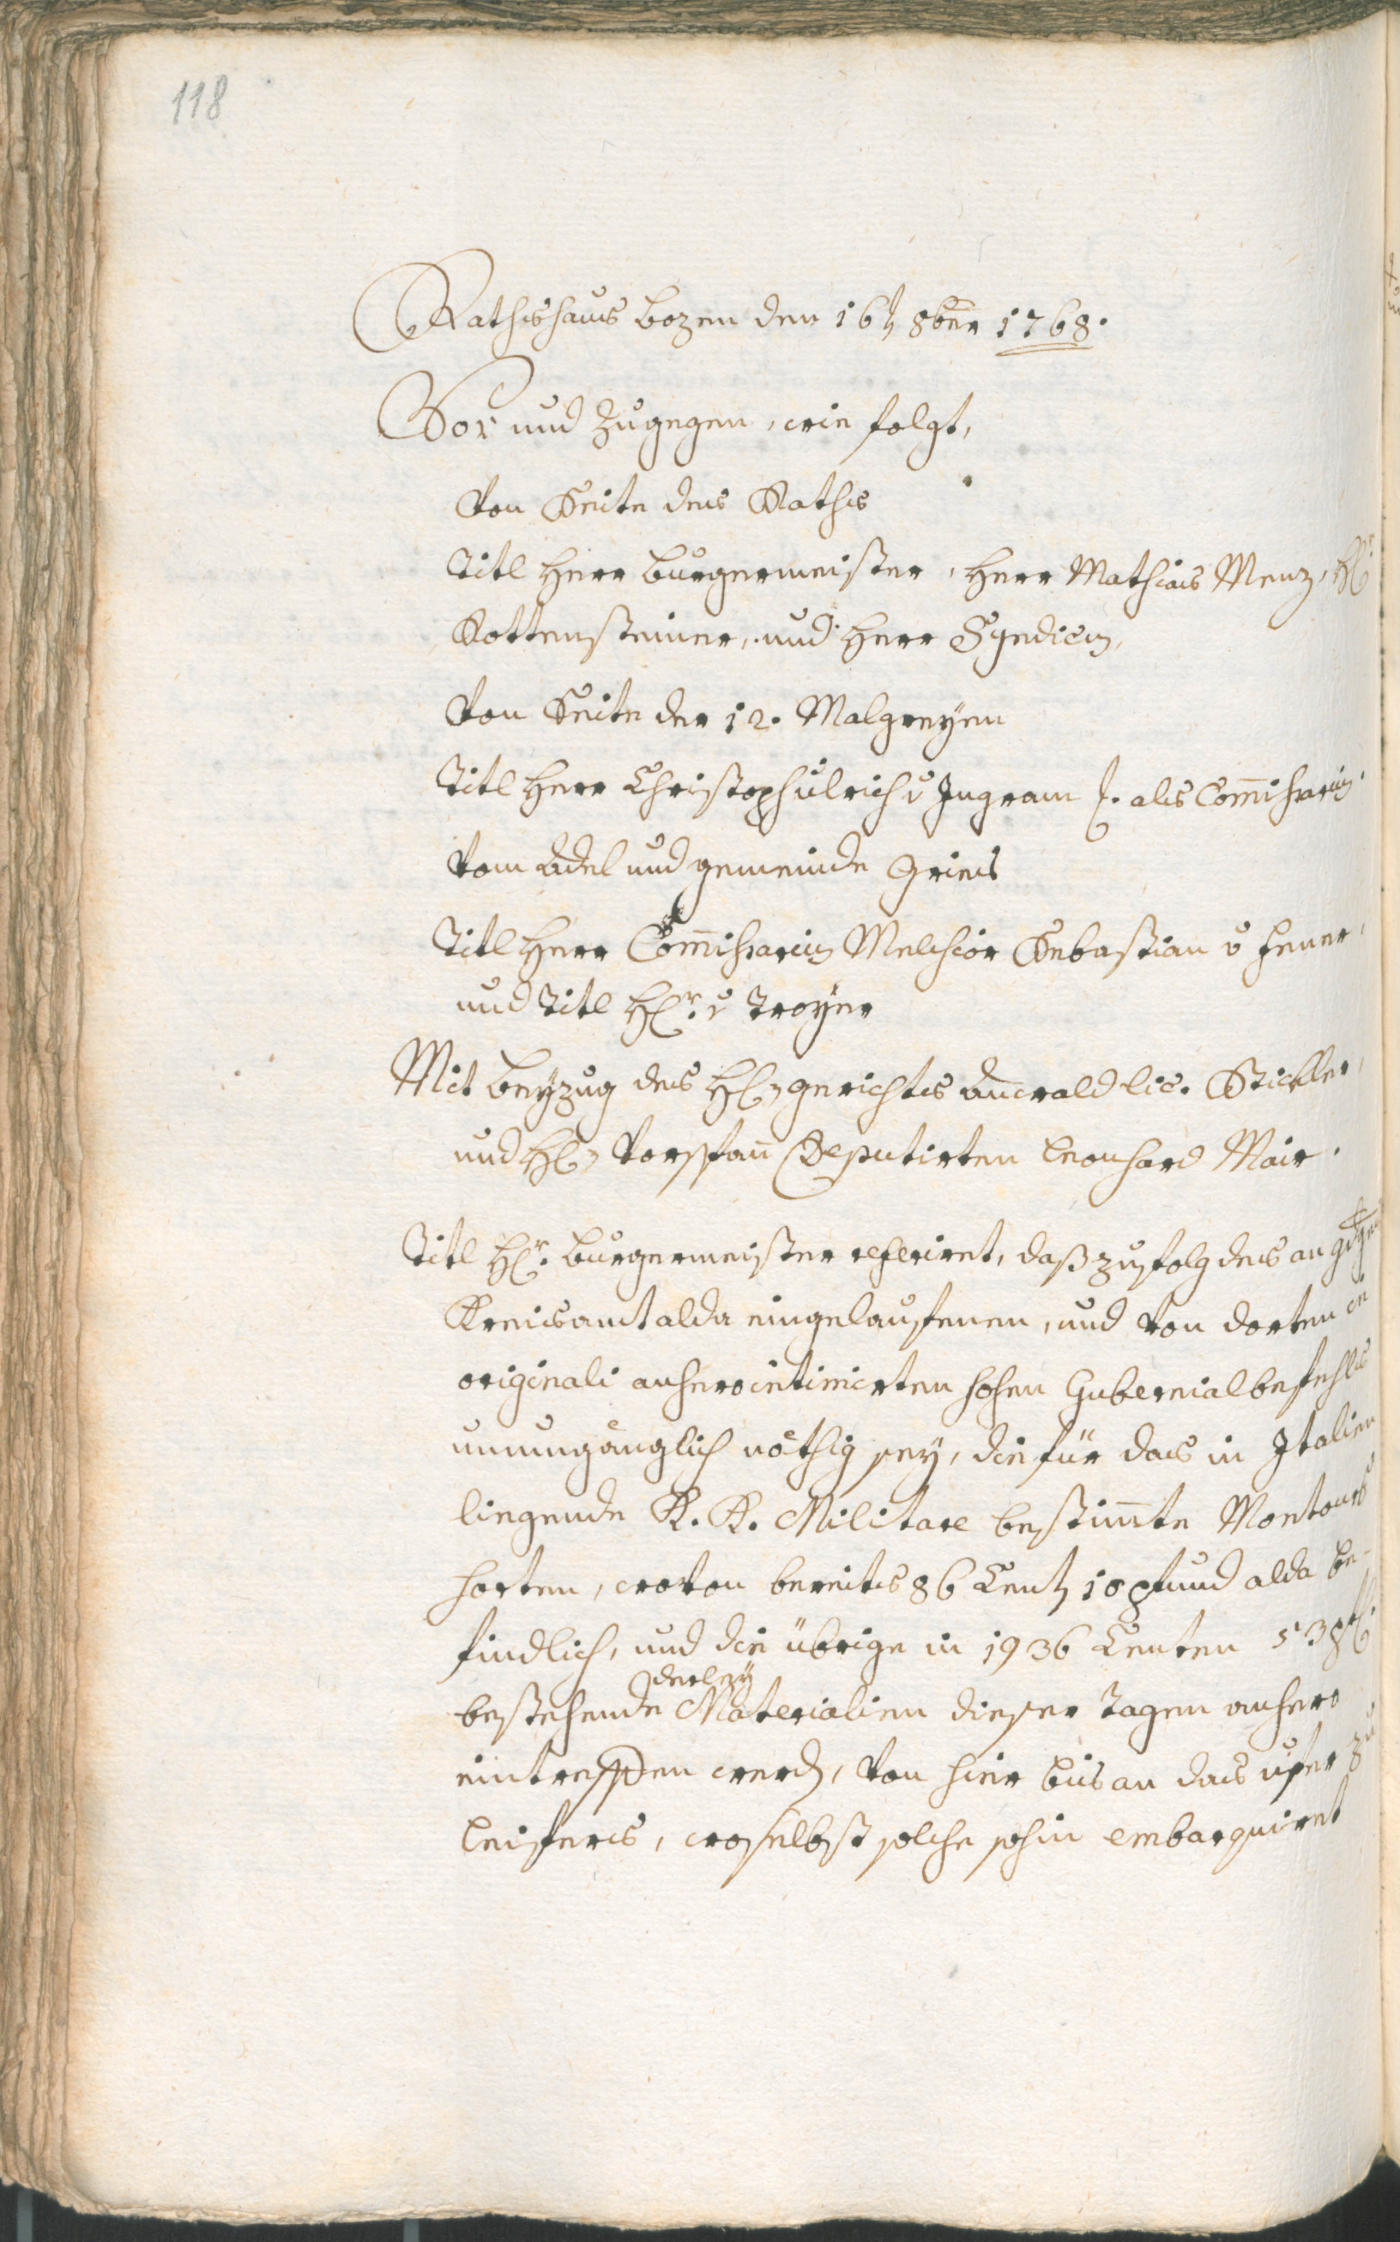 118
Rathshaus Bozen den 16ţ 8ber 1768.
Vor und Zugegen, wie folgt,
Von Seite des Raths
Titl Herr Burgermeister, Herr Mathias Menz, Hr
Rottensteiner, und Herr Syndicus,
Von Seite der 12. Malgreyen
Titl Herr Christoph Ulrich v Ingram p. als Comissarius
Vom Adel und gemeinde Gries
Titl Herr Comissarius Melchior Sebastian v
und Titl Hr. v Troyer
Mit beyzug des H: gerichts Anwald lic. Stickler,
und H: Vorspan Deputirten Leonhard Mair.
Titl Hr. Burgermeister referiret, daß zufolg des an
Kreisamt alda eingelaufenen, und von dorten in
originali anhero intimirten hohen Gubernialbefehls
unumgänglich nöthig sey, die für das in Italien
liegende K. K. Militare bestimte Montours
sorten, wovon bereits 86 Cent 18 Pfund alda be-
findlich, und die übrige in 1936 Centen 53 Pf.
bestehende derley Materialien dieser Tagen anhero
eintreffen werd, von hier bis an das ufer zu
Leifers, woselbst solche sohin embarquiret